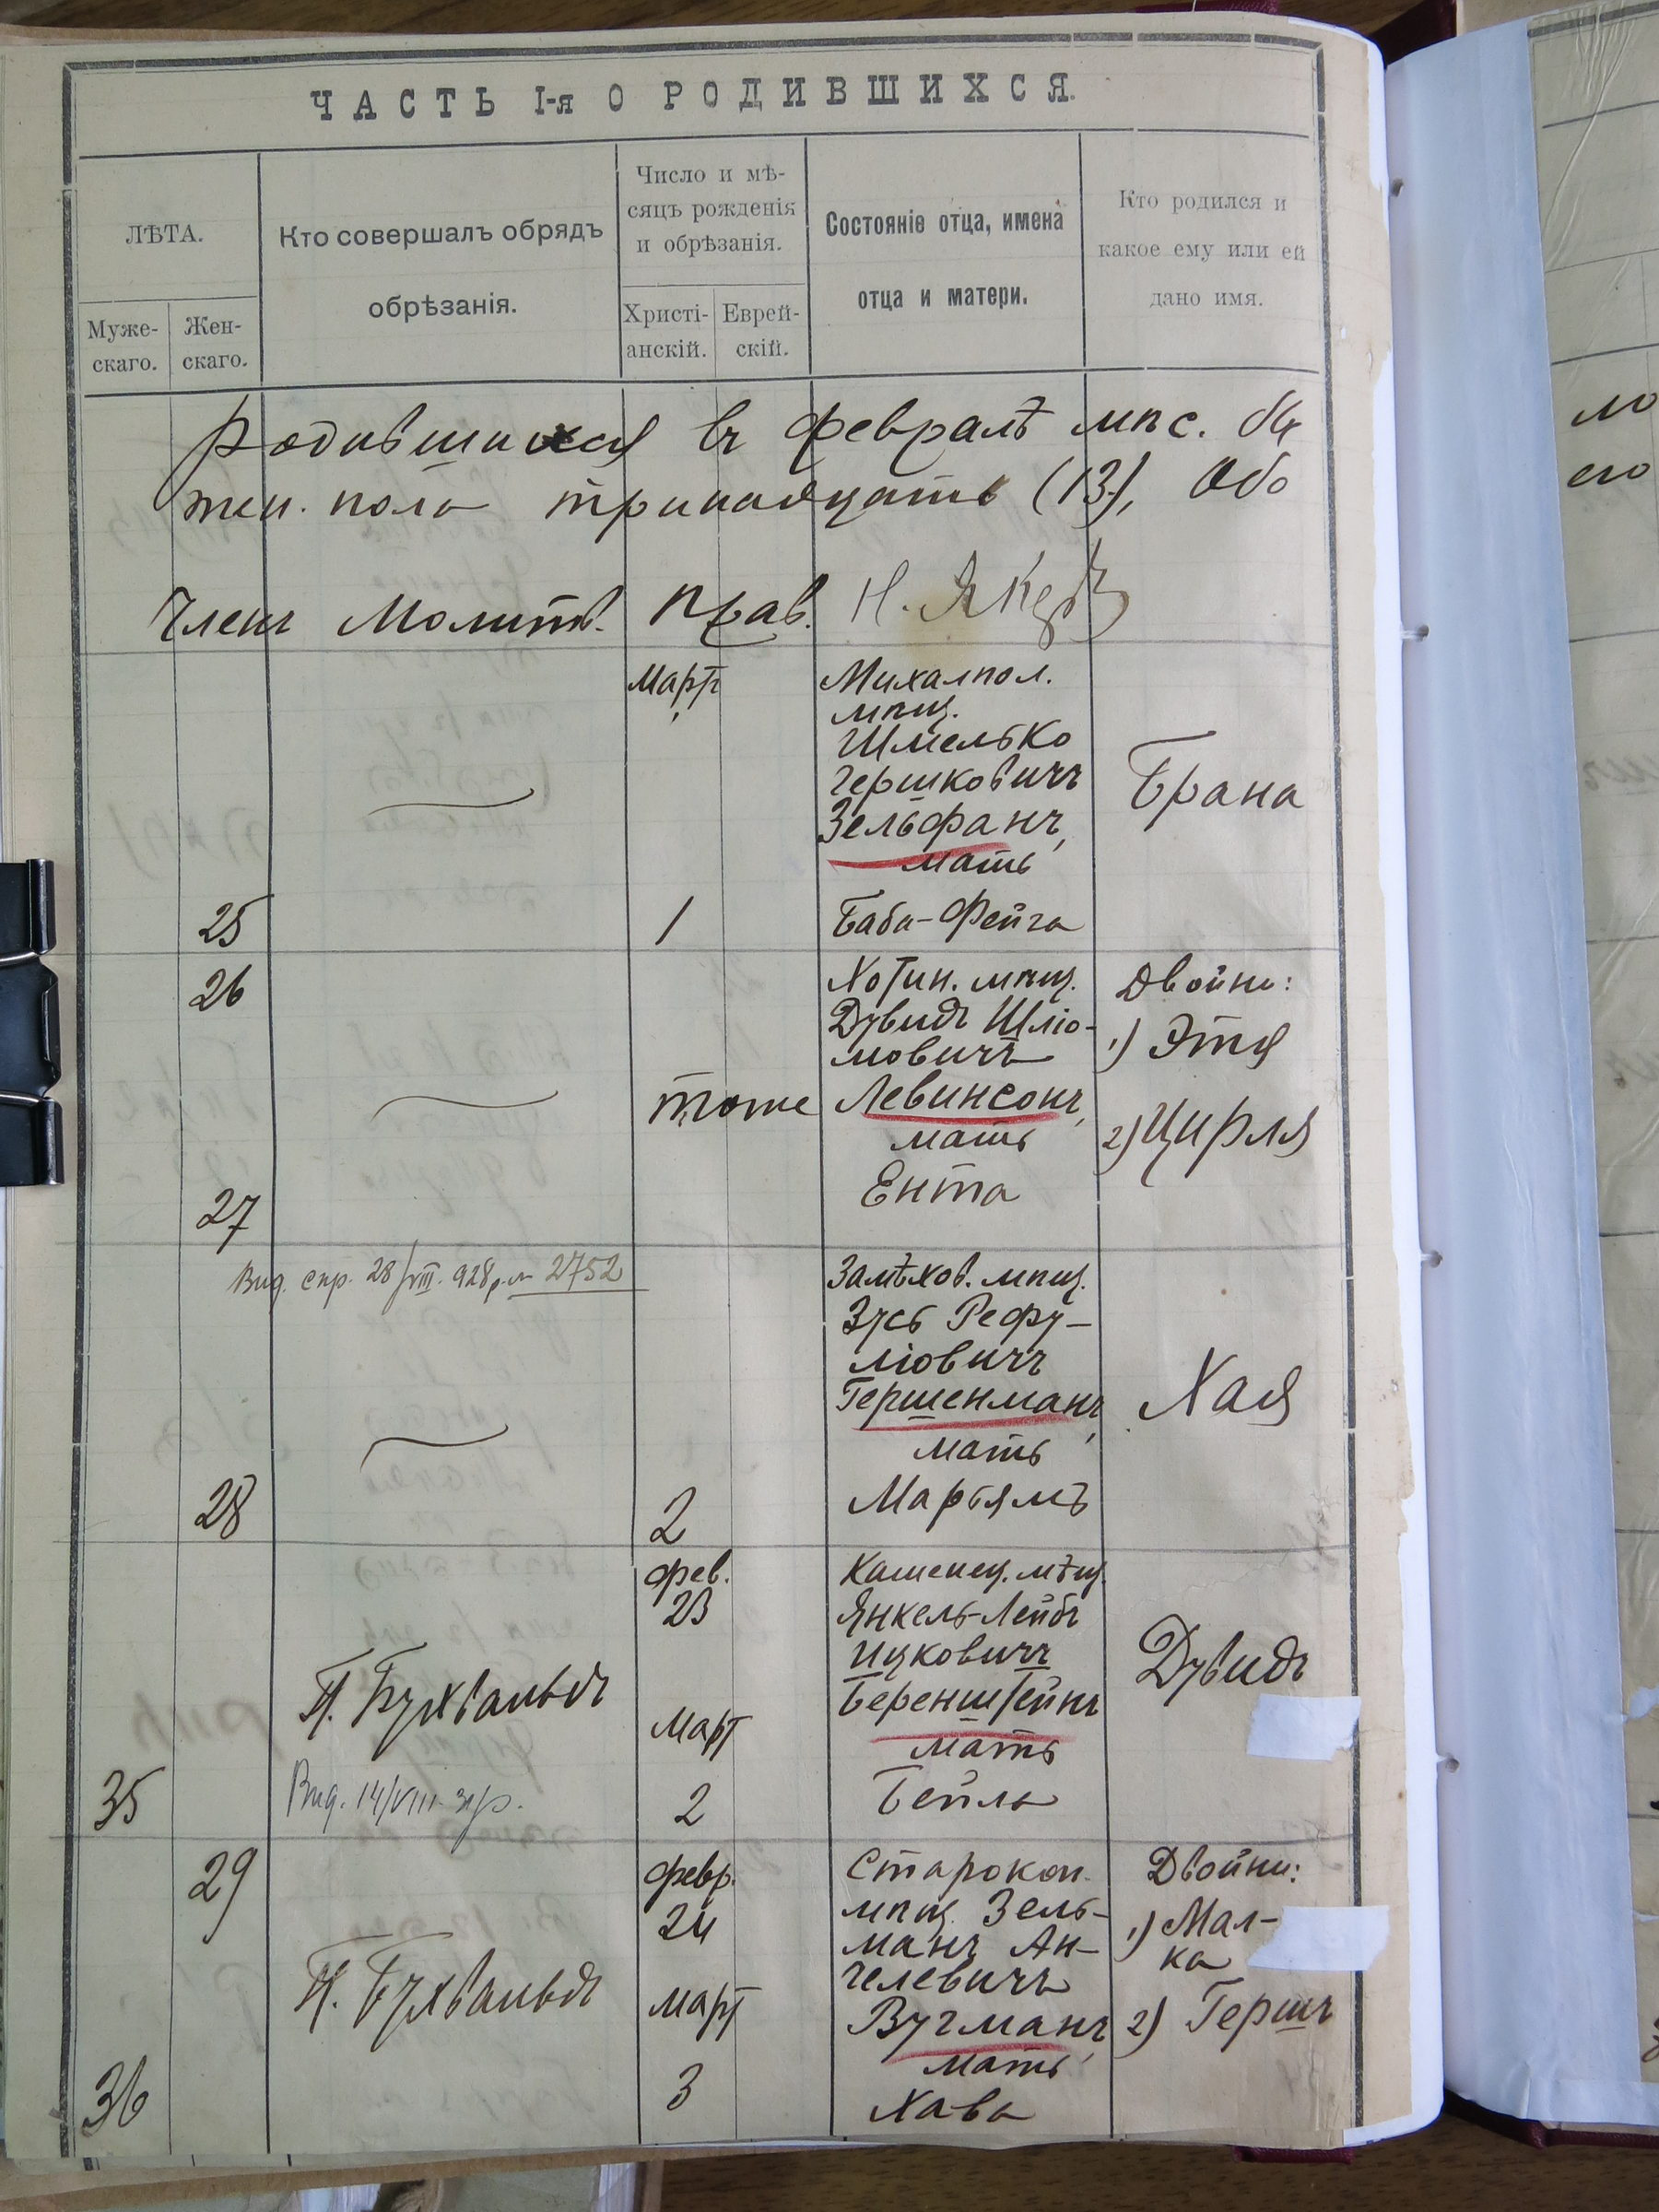 ЧАСТЬ I-я О РОДИВШИХСЯ.
ЛѢТА.
Муже-
скаго.
Жен-
скаго.
Кто совершалъ обрядъ
обрѣзанія.
Число и мѣ-
сяцъ рожденія
и обрѣзанія.
Христі-
анскій.
Еврей-
скій.
Состояніе отца, имена
отца и матери.
Кто родился и
какое ему или ей
дано имя.
Родившихся въ февралѣ мѣс.
жен. пола тринадцать (13), Обо
Членъ Молитв. Прав.
Мартъ
Михалпол.
мѣщ.
Шмелько
Гершковичъ
Зельфанъ,
мать
Баба-Фейга
Брана
25
1
26
27
тоже
Хотин. мѣщ.
Дувидъ Шліо-
мовичъ
Левинсонъ,
мать
Ента
Двойни:
1) Этя
2) Цирля
Вид. спр. 28/VIII. 928 р. № 2752
28
2
Замѣхов. мѣщ.
Зусь Рефу-
ліовичъ
Гершенманъ,
мать
Марьямъ
Хая
35
П. Бухвальдъ
Вид. 14/VIII
фев.
23
Март
2
Каменец. мѣщ.
Янкель-Лейбъ
Ицковичъ
Беренштейнъ
мать
Бейла
Дувидъ
29
36
П. Бухвальдъ
февр.
24
март
3
Старокон.
мѣщ. Зель-
манъ Ан-
челевичъ
Вугманъ,
мать
Хава
Двойни:
1) Мал-
ка
2) Гершъ